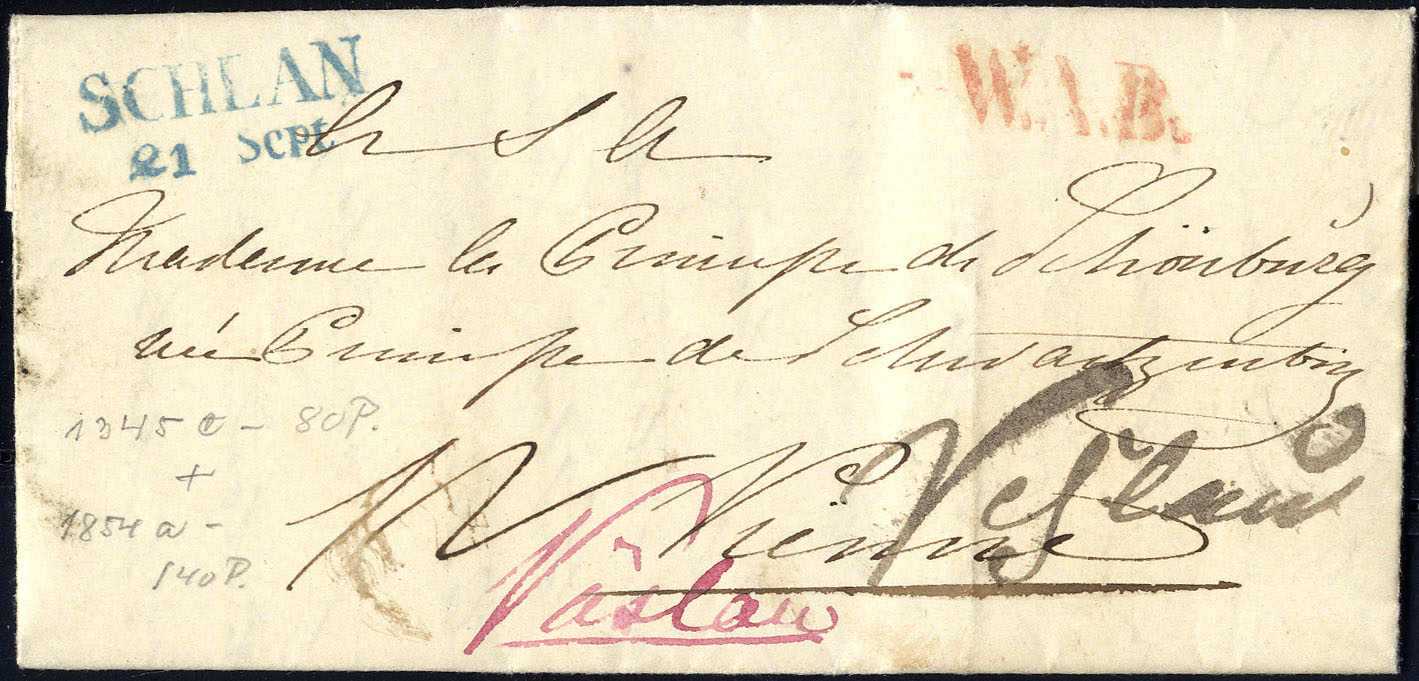 SCHLAN
21 Sept
W.I.B.
a S A
Madame la Princesse de Schönburg
née Princesse de Schwarzenberg
1345 e - 80P.
+
1854 a -
140P.
à Vienne
Vöslau
Vöslau